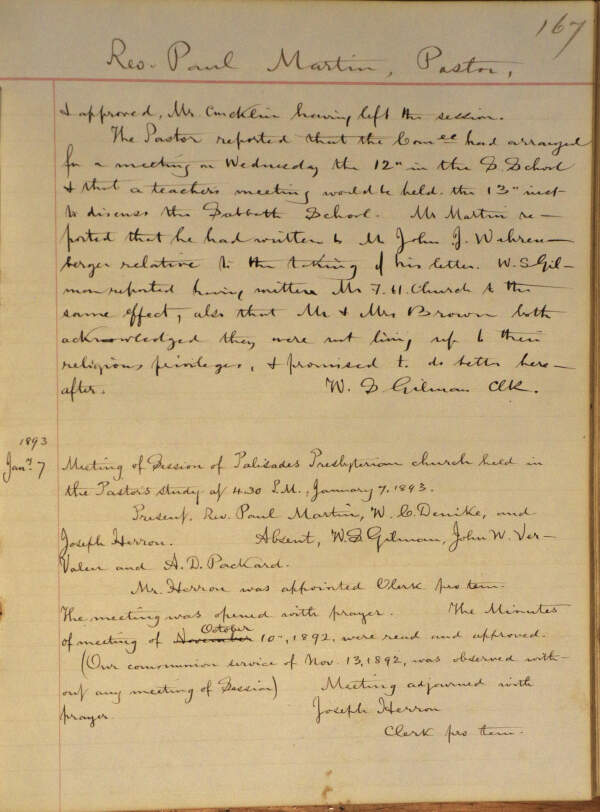 167
Rev. Paul Martin, Pastor,
& approved, Mr. Conklin having left the session.
The Pastor reported that the Com.ee had arranged
for a meeting on Wednesday the 12" in the S School
& that a teachers meeting would be held the 13" inst
to discuss the Sabbath School. Mr Martin re-
ported that he had written to Mr John J. Wehren-
berger relative to the taking of his letter. W. S Gil-
man reported having written Mr F. H. Church to the
same effect, also that Mr & Mrs Brown both
acknowledged they were not living up to their
religious privileges, & promised to do better here-
after. W. S Gilman Clk.
1893
Jany 7
Meeting of Session of Palisades Presbyterian church held in
the Pastor's study at 4.30 P.M., January 7, 1893.
Present, Rev. Paul Martin, W. C. Denike, and
Joseph Herron. Absent, W. S Gilman, John W. Ver-
Valen and A. D. Packard.
Mr. Herron was appointed Clerk pro tem.
The meeting was opened with prayer. The Minutes
October
of meeting of November 10th, 1892, were read and approved.
(Our communion service of Nov. 13, 1892, was observed with-
out any meeting of Session) Meeting adjourned with
prayer. Joseph Herron
Clerk pro tem.